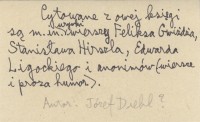 Cytowane z owej księgi
są m.in. wyjątki wierszy Feliksa Gwiżdża,
Stanisława Hirszla, Edwarda
Ligockiego i anonimów (wiersze
i proza humor.).
Autor: Józef Diehl?